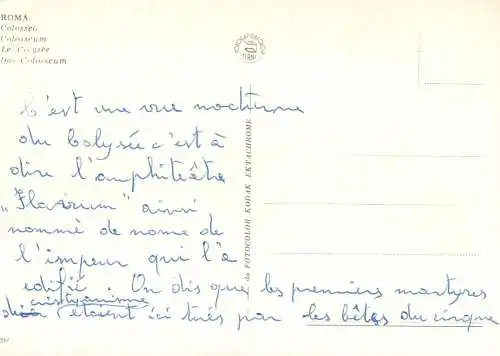 ROMA
Colosseo
Colosseum
Le Colysée
Das Colosseum
C'est une vue nocturne
du Colysée c'est à
dire l'amphiteâtre
„Flavium" ainsi
nommé de nome de
l'impeur qui l'a
edifié. On dis que les premiers martyres
cristyanisme
étaient ici tués par les bêtes du cirque
FOTOCOLOR KODAK EKTACHROME